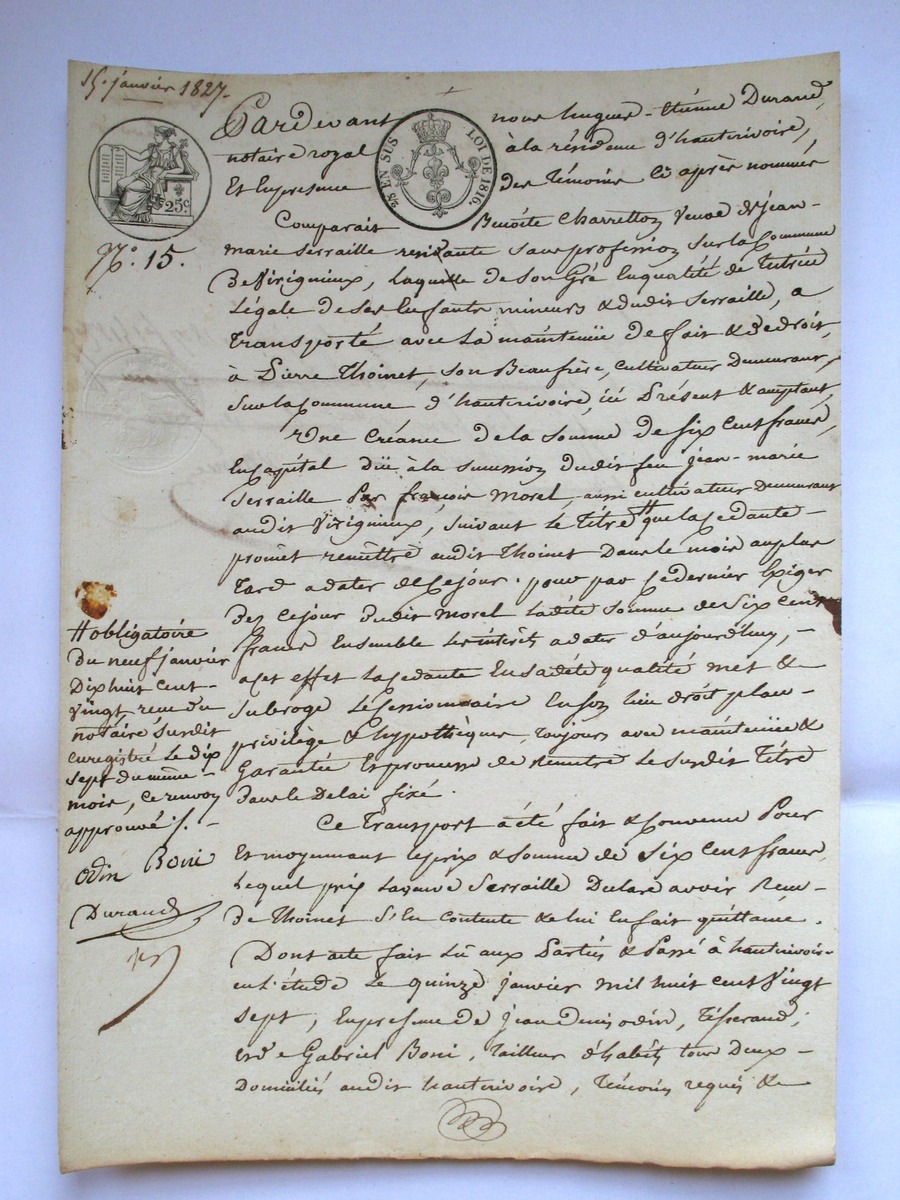 15. janvier 1827.
25 c.
5/25 EN SUS LOI DE 1816.
N.o 15.
Pardevant nous hugues-Etienne Durand,
notaire royal à la résidence d'hauterivoire,
Et En presence des Témoins Ci après nommés
Comparait Benoîte Charretton Veuve de jean-
marie Serraille résidante Sans profession Sur la Commune
De Virignieux, Laquelle de Son Gré En qualité de Tutrice
Légale de Ses Enfants mineurs & dudit Serraille, a
Transporté avec La maintenüe De fait & De droit,
à Pierre Thoinet, Son Beaufrère, Cultivateur Demeurant,
Sur la Commune d'hauterivoire, ici Présent & acceptant,
Une Créance De la Somme De Six Cent francs,
En Capital Düe à la Succession Dudit feu jean-marie
Serraille Par françois Morel, aussi cultivateur Demeurant
audit Virignieux, Suivant Le Titre # que la Cedante
promèt remèttre audit Thoinet Dans le mois au plus
Tard a dater de Ce jour. pour par Ce dernier Exiger
Dez Ce jour Dudit Morel Ladite Somme de Six Cent
francs Ensemble Les intérêts a dater d'aujourd'huy, -
a Cet effet La Cedante En Sadite qualité met &
Subroge Le Cessionnaire En Son lieu droit place -
privilège & hypothèques, Toujours avec maintenüe &
Garantie Et promesse de Remettre Le Susdit Titre
Dans le Delai fixé.
Ce Transport a été fait & Convenu Pour
Et moyennant Le prix & Somme de Six Cent francs,
Lequel prix La veuve Serraille Declare avoir Reçu -
De Thoinet S'En Contente & lui En fait quittance.
Dont acte fait Lû aux Parties & Passé à hauterivoire
en L'étude Le quinze janvier Mil huit Cent Vingt
Sept, En presence De jean Denis Odin, Tisserand,
et de Gabriel Boni, Tailleur d'habits tous Deux -
Domiciliés audit hauterivoire, Témoins requis &
# obligatoire
Du neuf janvier
Dix huit Cent -
Vingt reçu du
notaire Susdit
enregistré Le dix
Sept du même -
mois, Ce renvoy
approuvé ./. -
Odin Boni
Durand